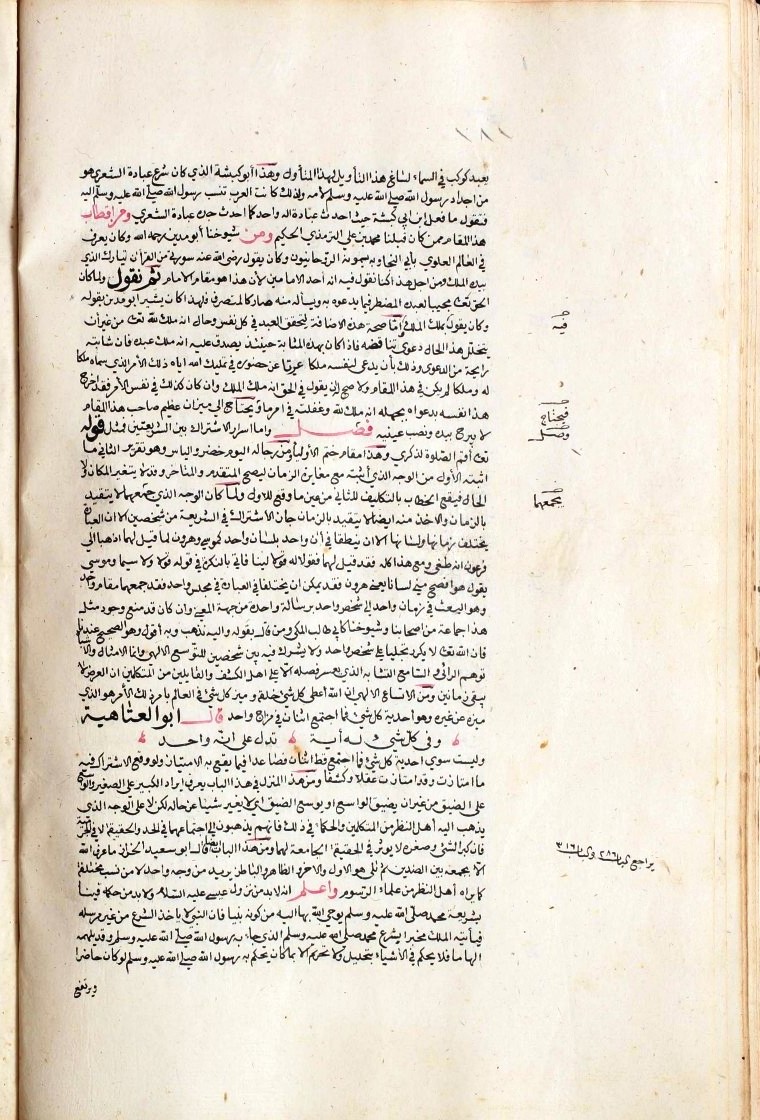 ١٨١
بعبد كوكب في السماء لساغ هذا التأويل لهذا المتأول وهذا أبو كبشة الذي كان شرع عبادة الشعرى هو
من اجداد رسول الله صلى الله عليه وسلم لأمه ولذلك كانت العرب تنسب رسول الله صلى الله عليه وسلم اليه
فتقول ما فعل ابن ابي كبشة حيث احدث عبادة اله واحد كما احدث جده عبادة الشعرى ومن اقطاب
هذا المقام ممن كان قبلنا محمد بن علي الترمذي الحكيم ومن شيوخنا أبو مدين رحمه الله وكان يعرف
في العالم العلوي بأبي النجا وبه يسمونه الروحانيون وكان يقول رضي الله عنه سورتي من القرآن تبارك الذي
بيده الملك ومن اجل هذا كنا نقول فيه انه أحد الامامين لأن هذا هو مقام الامام ثم نقول ولما كان
الحق تعالى مجيبا لعبده المضطر فيما يدعوه به ويسأله منه صار كالمتصرف فلهذا كان يشير ابو مدين بقوله
وكان يقول بملك الملك أما صحة هذه الاضافة لتحقق العبد في كل نفس وحال انه ملك لله تعالى من غير أن
يتخلل هذا الحال دعوى تناقضه فاذا كان بهذه المثابة حينئذ يصدق عليه انه ملك عبده فان شابته
رايحة من الدعوى وذلك بأن يدعي لنفسه ملكا عريا عن حضوره في تمليك الله اياه ذلك الأمر الذي سماه ملكا
له وملكا لم يكن في هذا المقام ولا صح له ان يقول في الحق انه ملك الملك وان كان كذلك في نفس الأمر فقد اخرج
هذا نفسه بدعواه بجهله انه ملك لله وغفلته في امر ما ويحتاج الى ميزان عظيم صاحب هذا المقام
لا يبرح بيده ونصب عينيه فصل واما اسرار الاشتراك بين الشريعتين فمثل قوله
تعالى أقم الصلوة لذكري وهذا مقام ختم الأولياء ومن رجاله اليوم خضر والياس وهو تقرير الثاني ما
اثبته الأول من الوجه الذي أثبته مع مغايرة الزمان ليصح المتقدم والمتاخر وقد لا يتغير المكان ولا
الحال فيقع الخطاب بالتكليف للثاني من عين ما وقع للاول ولما كان الوجه الذي جمعهما لا يتقيد
بالزمان والأخذ منه ايضا لا يتقيد بالزمان جاز الاشتراك في الشريعة من شخصين الا ان العبارة
يختلف زمانها ولسانها الا ان ينطقا في آن واحد بلسان واحد كموسى وهرون لما قيل لهما اذهبا الى
فرعون انه طغى ومع هذا كله فقد قيل لهما فقولا له قولا لينا فاتى بالنكرة في قوله قولا ولا سيما وموسى
يقول هو افصح مني لسانا يعني هرون فقد يمكن ان يختلفا في العبارة في مجلس واحد فقد جمعهما مقام واحد
وهو البعث في زمان واحد الى شخص واحد برسالة واحدة من جهة المعنى وان كان قد منع وجود مثل
هذا جماعة من اصحابنا وشيوخنا كأبي طالب المكي ومن قال بقوله واليه نذهب وبه أقول وهو الصحيح عندنا
فان الله تعالى لا يكرر تجليا على شخص واحد ولا يشرك فيه بين شخصين للتوسع الالهي وانما الامثال والأشباه
توهم الرائي والسامع للتشابه الذي يعسر فصله الا على اهل الكشف والقايلين من المتكلمين ان العرض لا
يبقى زمانين ومن الاتساع الالهي ان الله أعطى كل شيء خلقه وميز كل شيء في العالم بأمر ذلك الأمر هو الذي
ميزه عن غيره وهو احدية كل شيء فما اجتمع اثنان في مزاج واحد قال ابو العتاهية
وفي كل شيء له آية تدل على أنه واحد
وليست سوى احدية كل شيء فما اجتمع قط اثنان فصاعدا فيما يقع به الامتياز ولو وقع الاشتراك فيه
ما امتازت وقد امتازت عقلا وكشفا ومن هذا المنزل في هذا الباب يعرف ايراد الكبير على الصغير والواسع
على الضيق من غير ان يضيق الواسع او يوسع الضيق اي لا يغير شيئا عن حاله لكن لا على الوجه الذي
يذهب اليه أهل النظر من المتكلمين والحكماء في ذلك فانهم يذهبون الى اجتماعهما في الحد والحقيقة لا في الجرمية
فان كبر الشيء وصغره لا يوثر في الحقيقة الجامعة لهما ومن هذا الباب ايضا قال ابو سعيد الخراز ما عرف الله
الا بجمعه بين الضدين ثم تلى هو الاول والاخر والظاهر والباطن يريد من وجه واحد لا من نسب مختلفة
كما يراه أهل النظر من علماء الرسوم واعلم انه لا بد من نزول عيسى عليه السلام ولا بد من حكمه فينا
بشريعة محمد صلى الله عليه وسلم يوحي الله بها اليه من كونه نبيا فان النبي لا يأخذ الشرع من غير مرسله
فيأتيه الملك مخبرا بشرع محمد صلى الله عليه وسلم الذي جاء به رسول الله صلى الله عليه وسلم وقد يلهمه
الهاما فلا يحكم في الأشياء بتحليل ولا تحريم الا بما كان يحكم به رسول الله صلى الله عليه وسلم لو كان حاضرا
ويرتفع
فيه
فيحتاج
يجمعهما
يراجع لباب ٢٨٦ ولباب ٣١٦